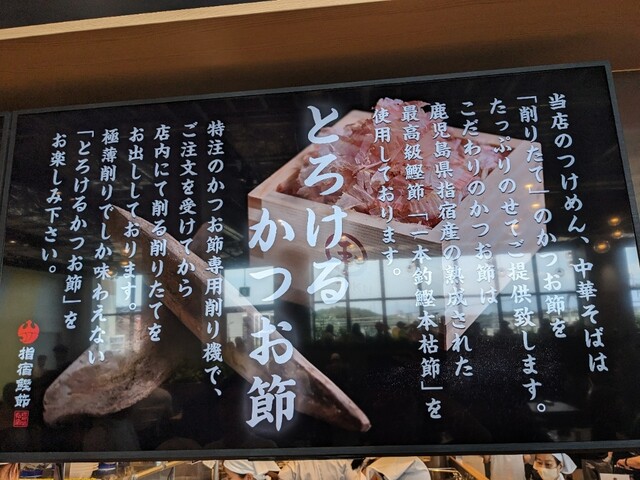 当店のつけめん、中華そばは
「削りたて」のかつお節を
たっぷりのせてご提供致します。
こだわりのかつお節は
鹿児島県指宿産の熟成された
最高級鰹節「一本釣鰹本枯節」を
使用しております。
とろける
かつお節
特注のかつお節専用削り機で、
ご注文を受けてから
店内にて削る削りたてを
お出ししております。
極薄削りでしか味わえない
「とろけるかつお節」を
お楽しみ下さい。
指宿鰹節